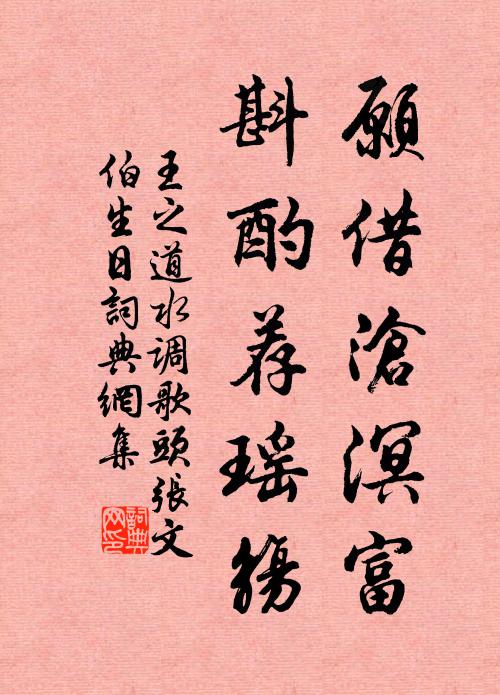 願借滄溟富
斟酌荐瑶觴
王之道水调歌頭張文
伯生日詞典網集
詞典网印